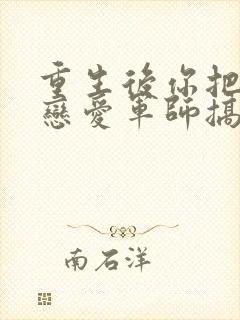 重生後你把
戀愛軍師搞
南石洋